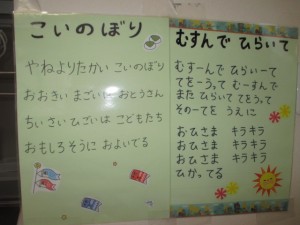 こいのぼり
やねよりたかい こいのぼり
おおきい まごいは おとうさん
ちいさい ひごいは こどもたち
おもしろそうに およいでる
むすんで ひらいて
むすーんで ひらいーて
てをーうって むーすんで
また ひらいて てをうって
そのーてを うえに
おひさま キラキラ
おひさま キラキラ
おひさま キラキラ
ひかってる